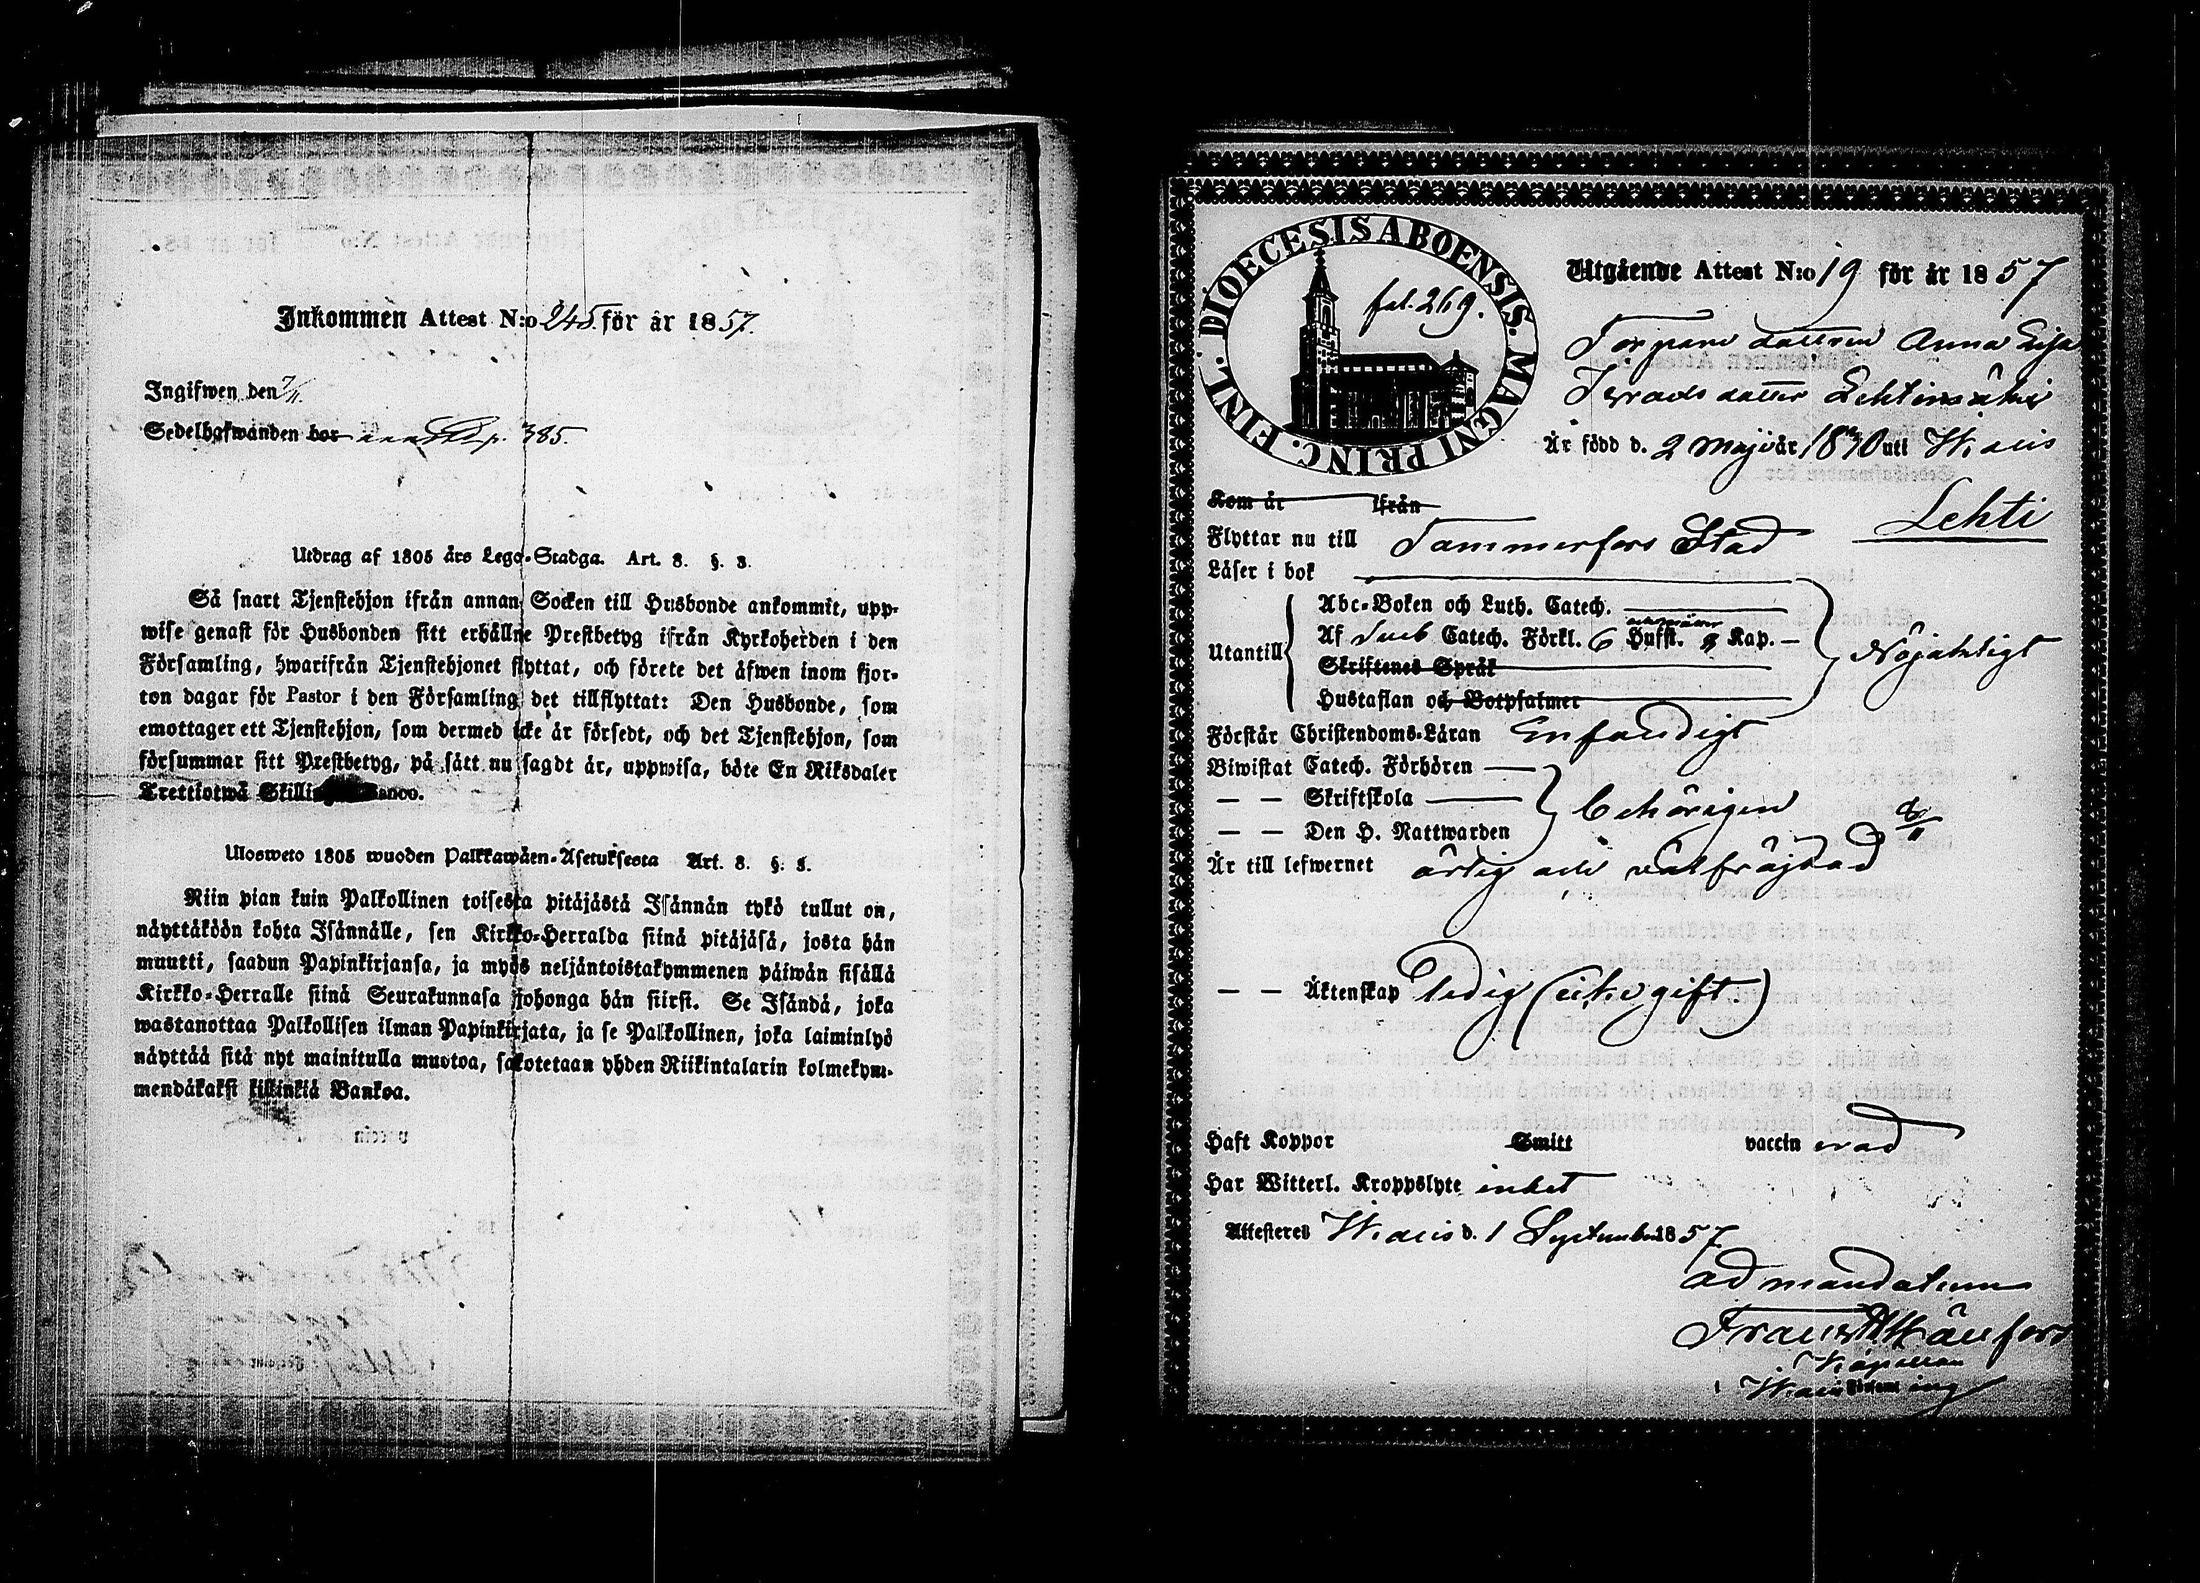 Inkommen Attest N:o 245. för år 1857.
Ingifwen den 7/11.
Sedelhafwanden bor p. 385.
Utdrag af 1805 års Lego-Stadga. Art. 8. §. 3.
Så snart Tjenstehjon ifrån annan Socken till Husbonde ankommit, upp-
wise genast för Husbonden sitt erhållne Prestbetyg ifrån Kyrkoherden i den
Församling, hwarifrån Tjenstehjonet flyttat, och förete det äfwen inom fjor-
ton dagar för Pastor i den Församling det tillflyttat: Den Husbonde, som
emottager ett Tjenstehjon, som dermed icke är försedt, och det Tjenstehjon, som
försummar sitt Prestbetyg, på sätt nu sagdt är, uppwisa, böte En Riksdaler
Trettiotwå Skilling Banco.
Ulosweto 1805 wuoden Palkkawäen-Asetuksesta Art. 8. §. 3.
Niin pian kuin Palkollinen toisesta pitäjästä Isännän tykö tullut on,
näyttäköön kohta Isännälle, sen Kirkko-Herralda siinä pitäjäsä, josta hän
muutti, saadun Papinkirjansa, ja myös neljäntoistakymmenen päiwän sisällä
Kirkko-Herralle siinä Seurakunnasa johonga hän siirsi. Se Isändä, joka
wastanottaa Palkollisen ilman Papinkirjata, ja se Palkollinen, joka laiminlyö
näyttää sitä nyt mainitulla muotoa, sakotetaan yhden Riikintalarin kolmekym-
mendäkaksi killinkiä Bankoa.
DIOECESIS ABOENSIS. MAGNI PRINC. FINL.
fol. 269.
Utgående Attest N:o 19 för år 1857
Torpare dottren Anna Lisa
dotter Lehtimäki
Är född d. 2 Maji år 1840 uti
Kom år ifrån
Lehti
Flyttar nu till Tammerfors Stad
Läser i bok
Utantill
Abc-Boken och Luth. Catech.
Af Catech. Förkl. 6 Hufst. Kap.
Skriftenes Språk
Hustaflan och Botpsalmer
Nöjaktigt
Förstår Christendoms-Läran Enfaldigt
Biwistat Catech. Förhören
— — Skriftskola
— — Den H. Nattwarden
behörigen
Är till lefwernet ärlig och välfräjdad
— — Äktenskap ledig (icke gift)
Haft Koppor Smitt vaccinerad
Har Witterl. Kroppslyte inket
Attesteres d. 1 September 1857
ad mandatum
Kapellan